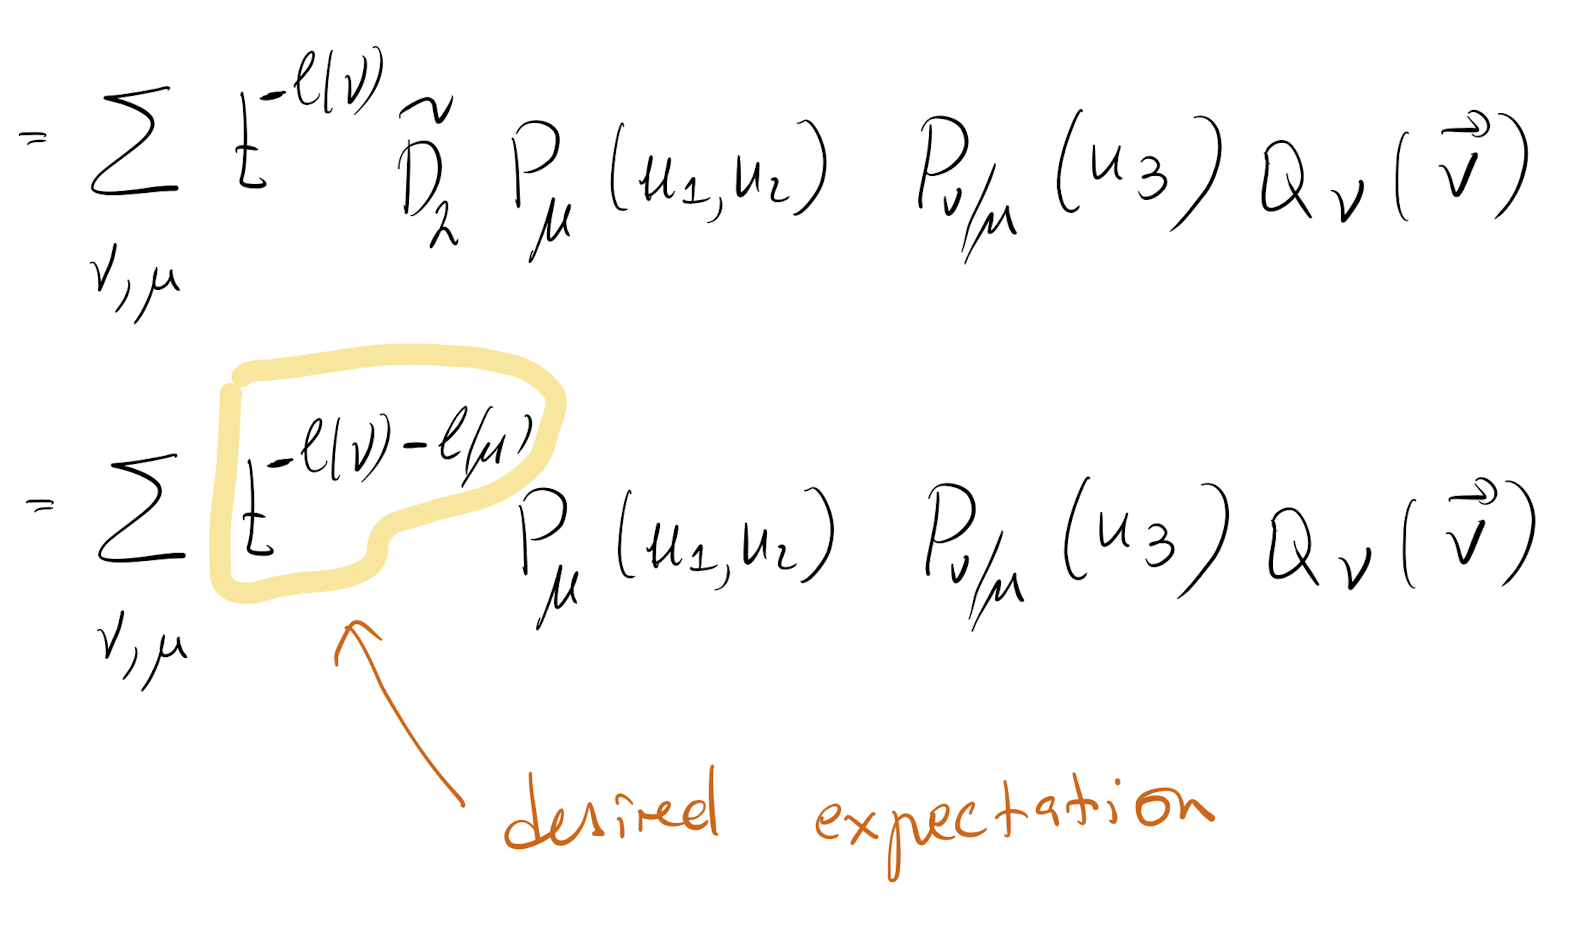 = ∑_{ν,μ} t^{-ℓ(ν)} D̃_2 P_μ(u_1,u_2) P_{ν/μ}(u_3) Q_ν(v⃗)
= ∑_{ν,μ} t^{-ℓ(ν)-ℓ(μ)} P_μ(u_1,u_2) P_{ν/μ}(u_3) Q_ν(v⃗)
desired expectation